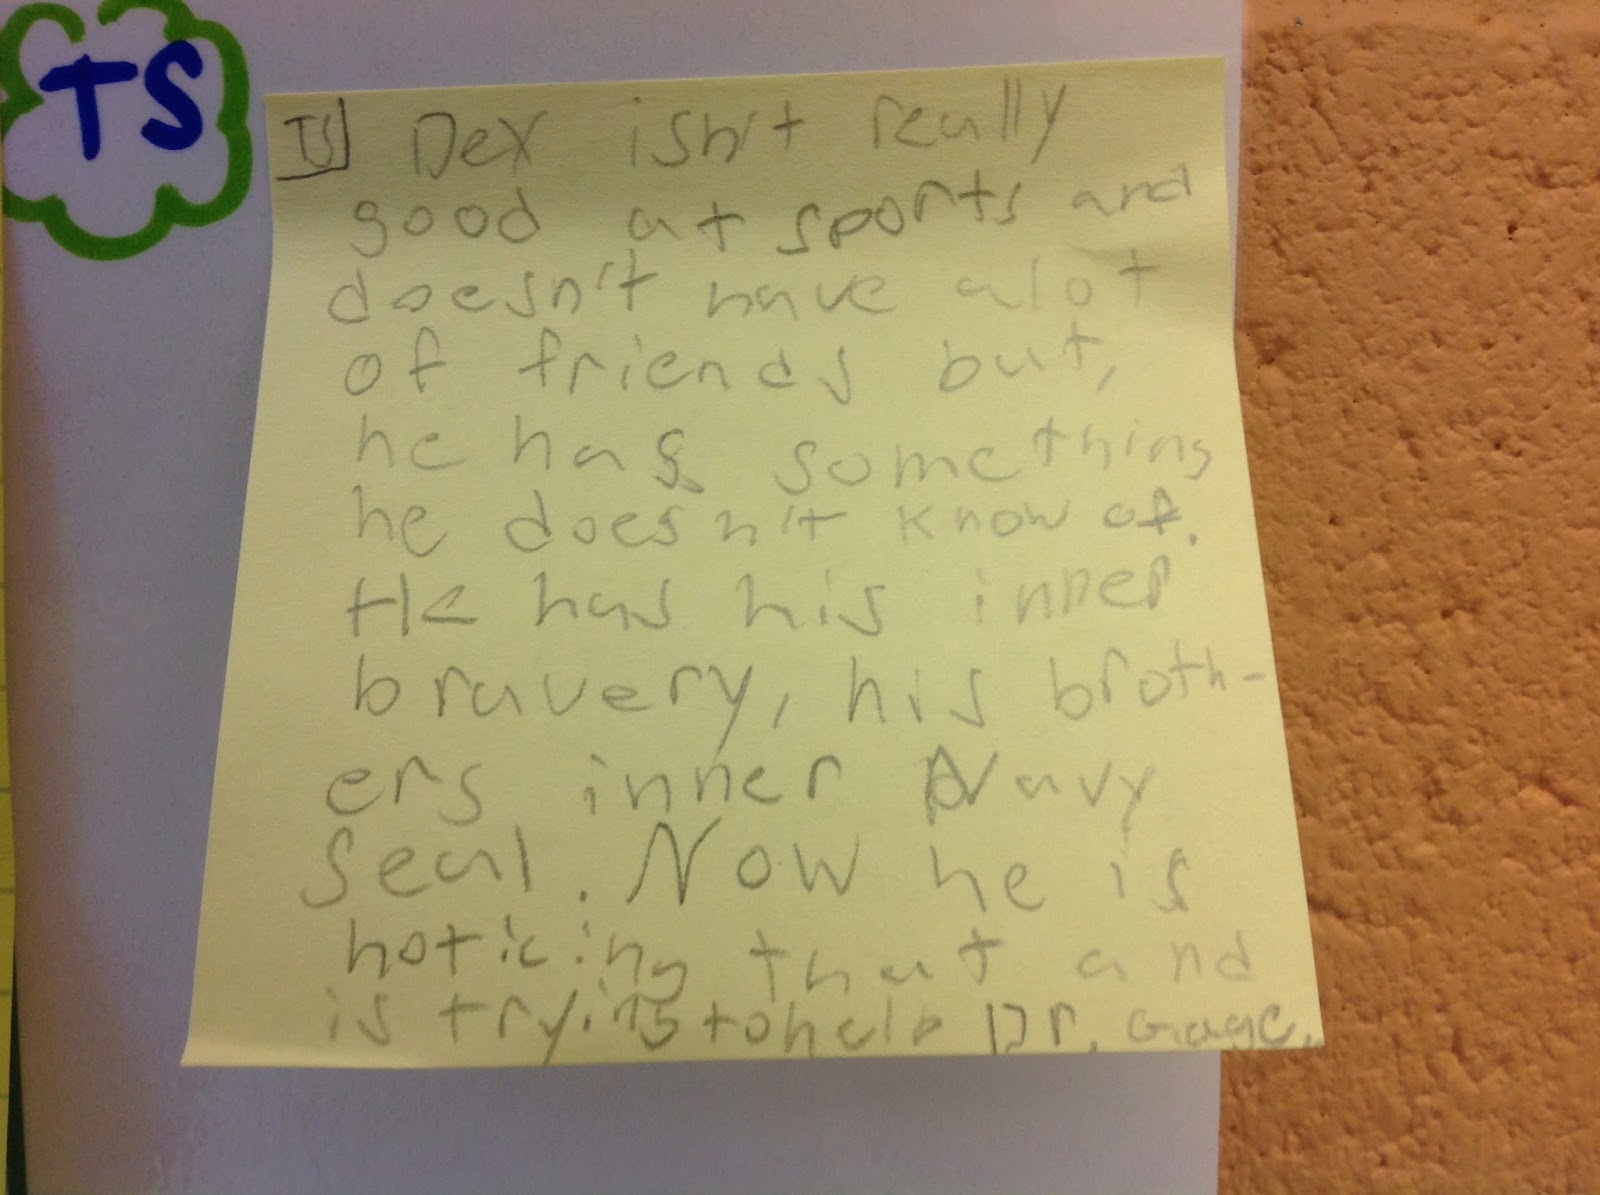 TS
TS Dex isn't really
good at sports and
doesn't have alot
of friends but,
he has something
he doesn't know of.
He has his inner
bravery, his broth-
ers inner Navy
Seal. Now he is
noticing that and
is trying to help Dr. Gage.